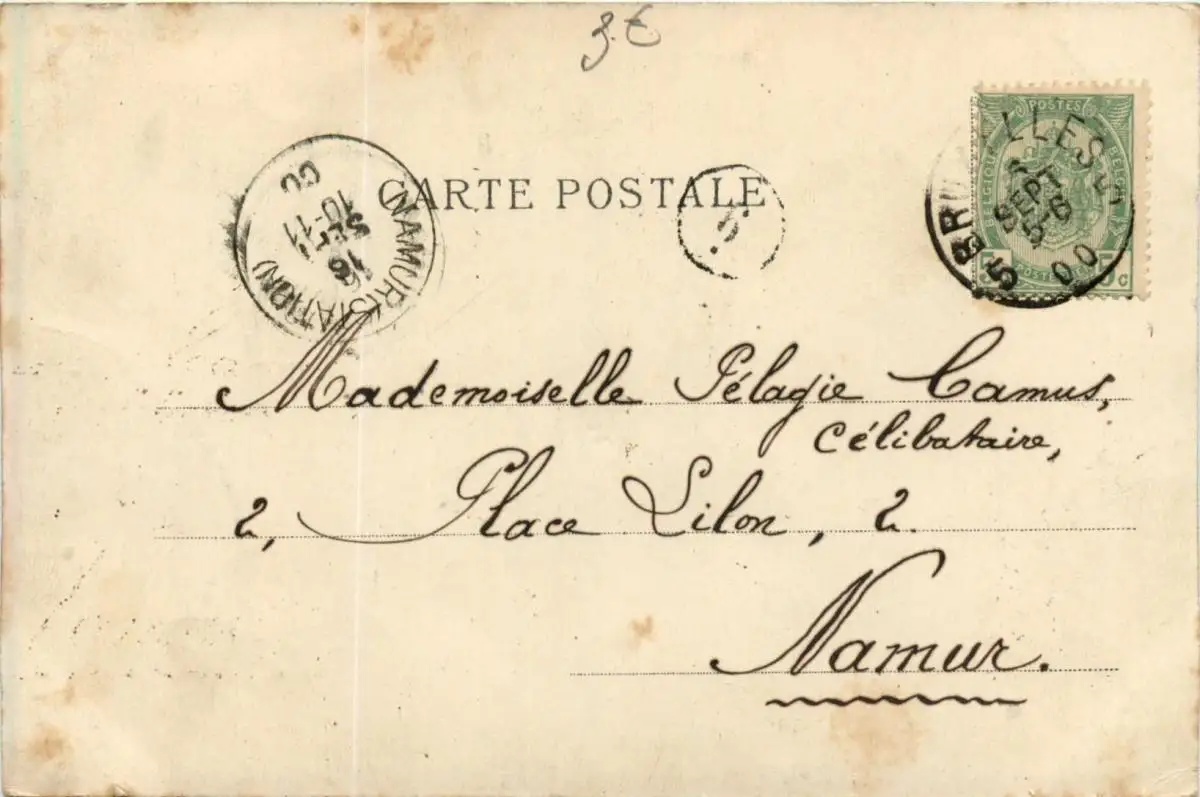 3.€
CARTE POSTALE
POSTES
BELGIQUE
BELGIË
5 BRUXELLES 5
SEPT
5-6
00
(NAMUR(STATION)
16
SEPT
10-11
00
Mademoiselle Pélagie Camus,
célibataire,
2, Place Lilon, 2.
Namur.